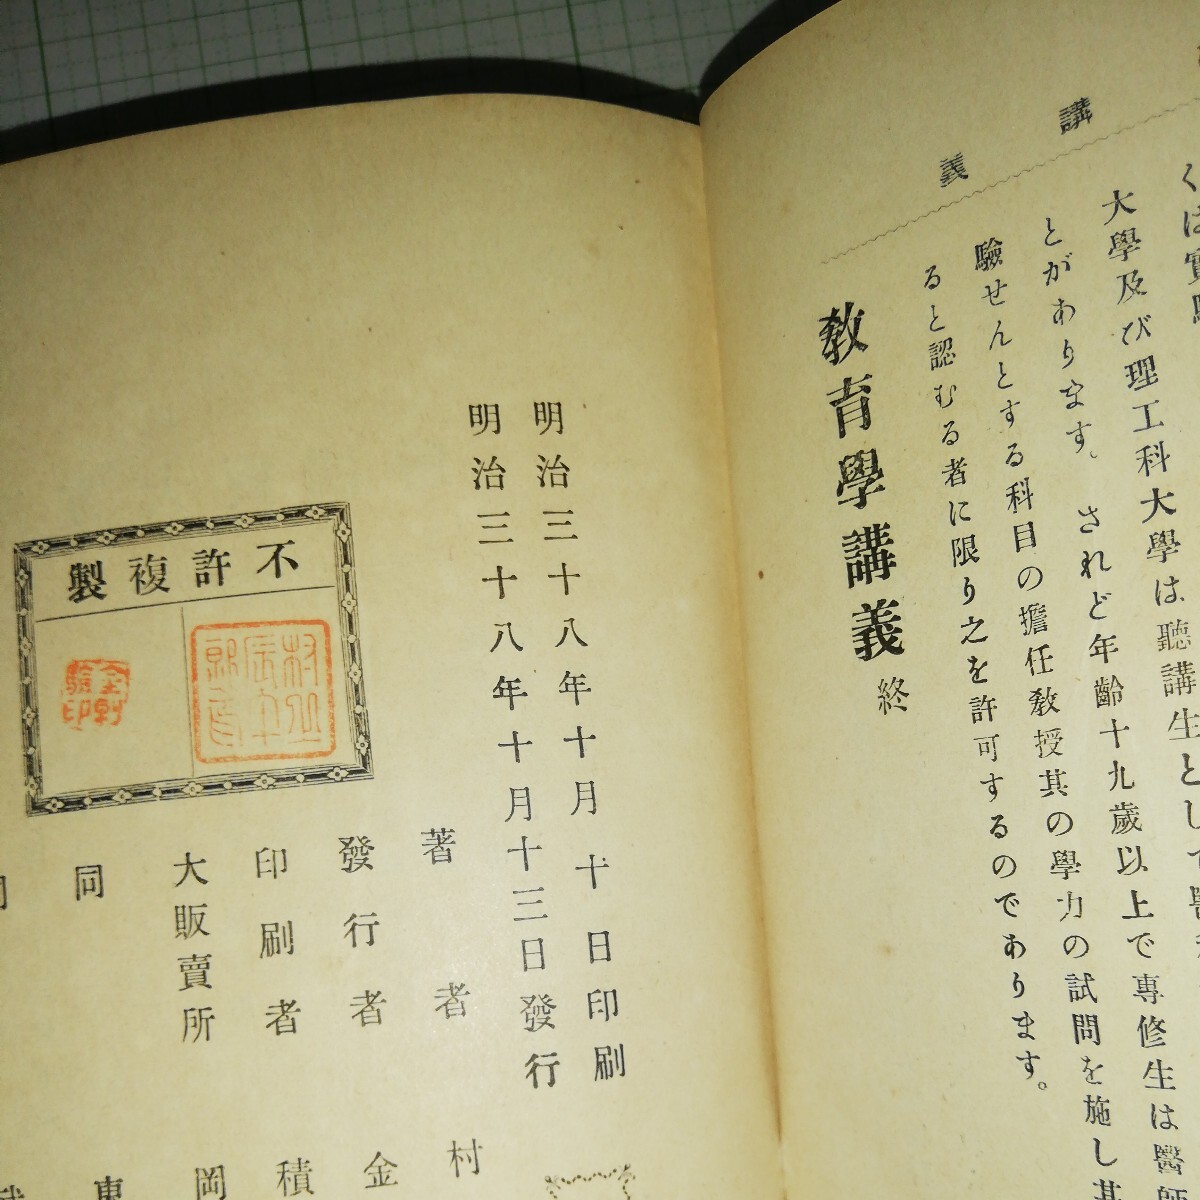 講義
くは實驗
大學及び理工科大學は聽講生として醫科
とがあります。されど年齡十九歲以上で專修生は醫師
驗せんとする科目の擔任敎授其の學力の試問を施し其
ると認むる者に限り之を許可するのであります。
敎育學講義終
明治三十八年十月十日印刷
明治三十八年十月十三日發行
不許複製
著者 村
發行者 金
印刷者 積
大販賣所 岡
同 東
同